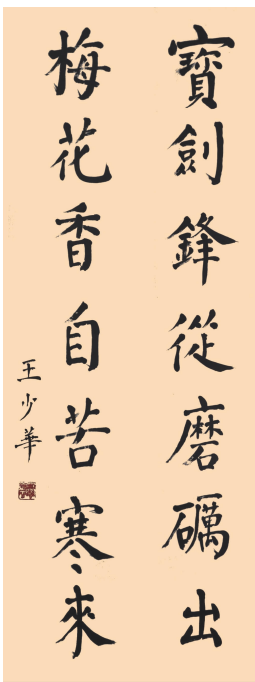 寶劍鋒從磨礪出
梅花香自苦寒來
王少華